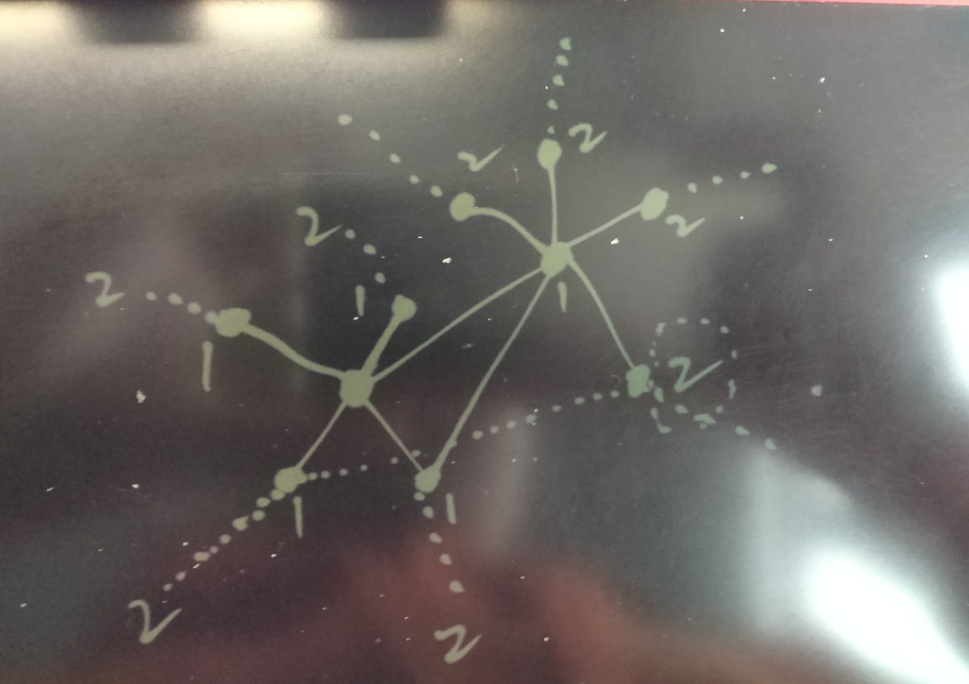 2
2
2
2
2
1
1
1
2
1
1
2
2